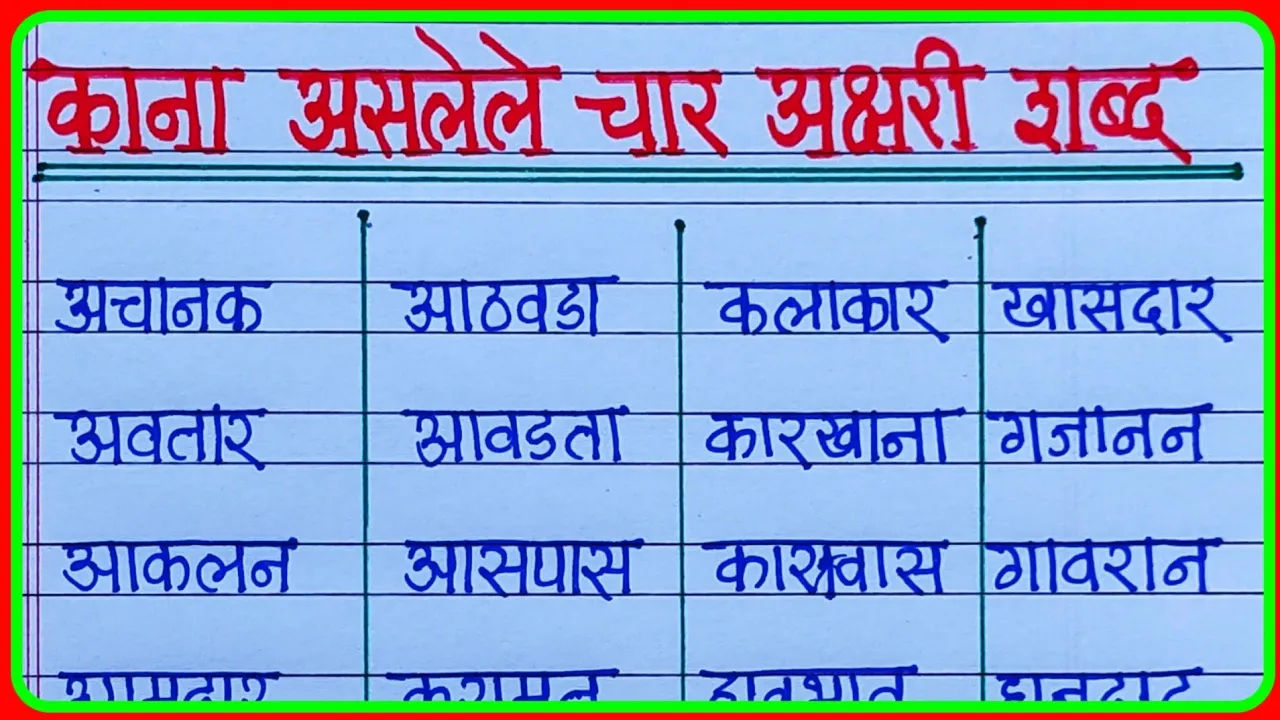 काना असलेले चार अक्षरी शब्द
अचानक आठवडा कलाकार खासदार
अवतार आवडता कारखाना गजानन
आकलन आसपास कारावास गावरान
आमदार